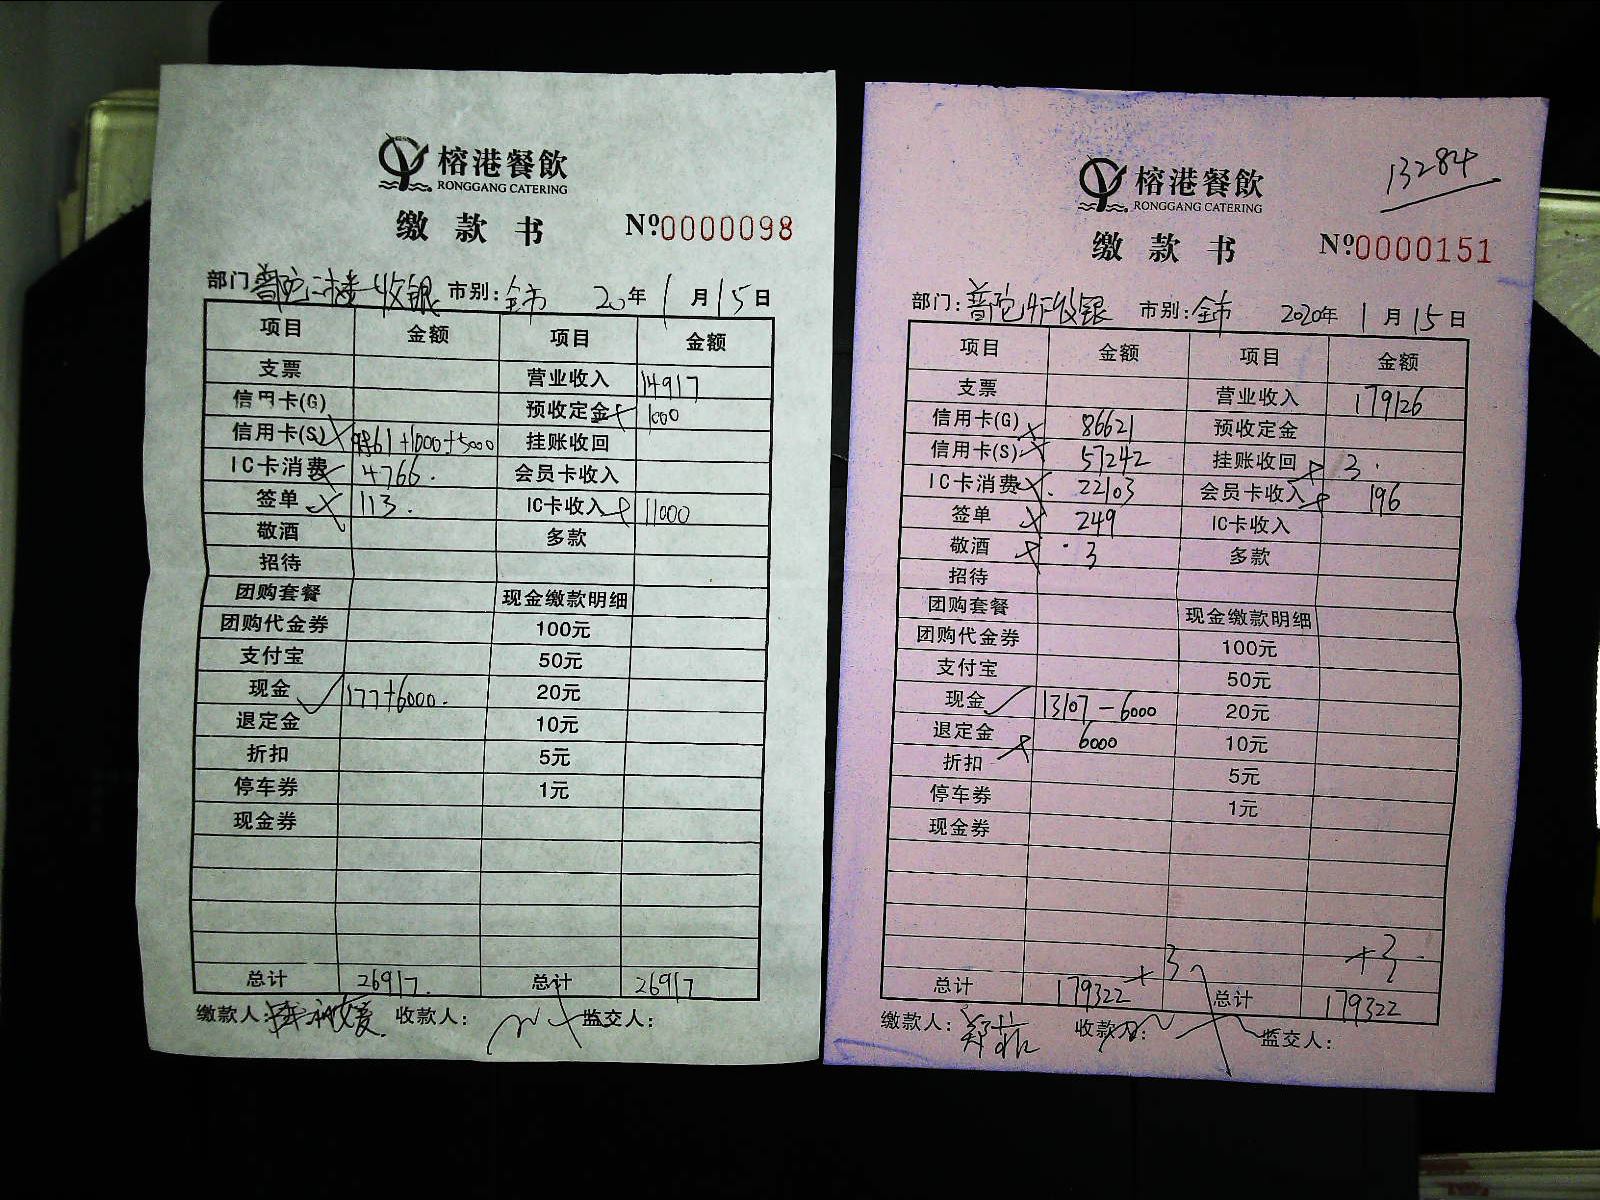 榕港餐飲
RONGGANG CATERING
缴款书
№0000098
部门 普陀二楼收银 市别: 全市 20年 1月15日
项目 金额 项目 金额
支票 营业收入 14917
信用卡(G) 预收定金 1000
信用卡(S) 9861+1000+5000 挂账收回
IC卡消费 4766. 会员卡收入
签单 113. IC卡收入 11000
敬酒 多款
招待
团购套餐 现金缴款明细
团购代金券 100元
支付宝 50元
现金 177+6000. 20元
退定金 10元
折扣 5元
停车券 1元
现金券
总计 26917. 总计 26917
缴款人: 收款人: 监交人:
13284
榕港餐飲
RONGGANG CATERING
缴款书
№0000151
部门: 普陀4F收银 市别: 全市 2020年 1月15日
项目 金额 项目 金额
支票 营业收入 179126
信用卡(G) 86621 预收定金
信用卡(S) 57242 挂账收回 3.
IC卡消费 22103 会员卡收入 196
签单 249 IC卡收入
敬酒 3 多款
招待
团购套餐 现金缴款明细
团购代金券 100元
支付宝 50元
现金 13107-6000 20元
退定金 6000 10元
折扣 5元
停车券 1元
现金券
+3 +3.
总计 179322 总计 179322
缴款人: 郑菲 收款人: 监交人: